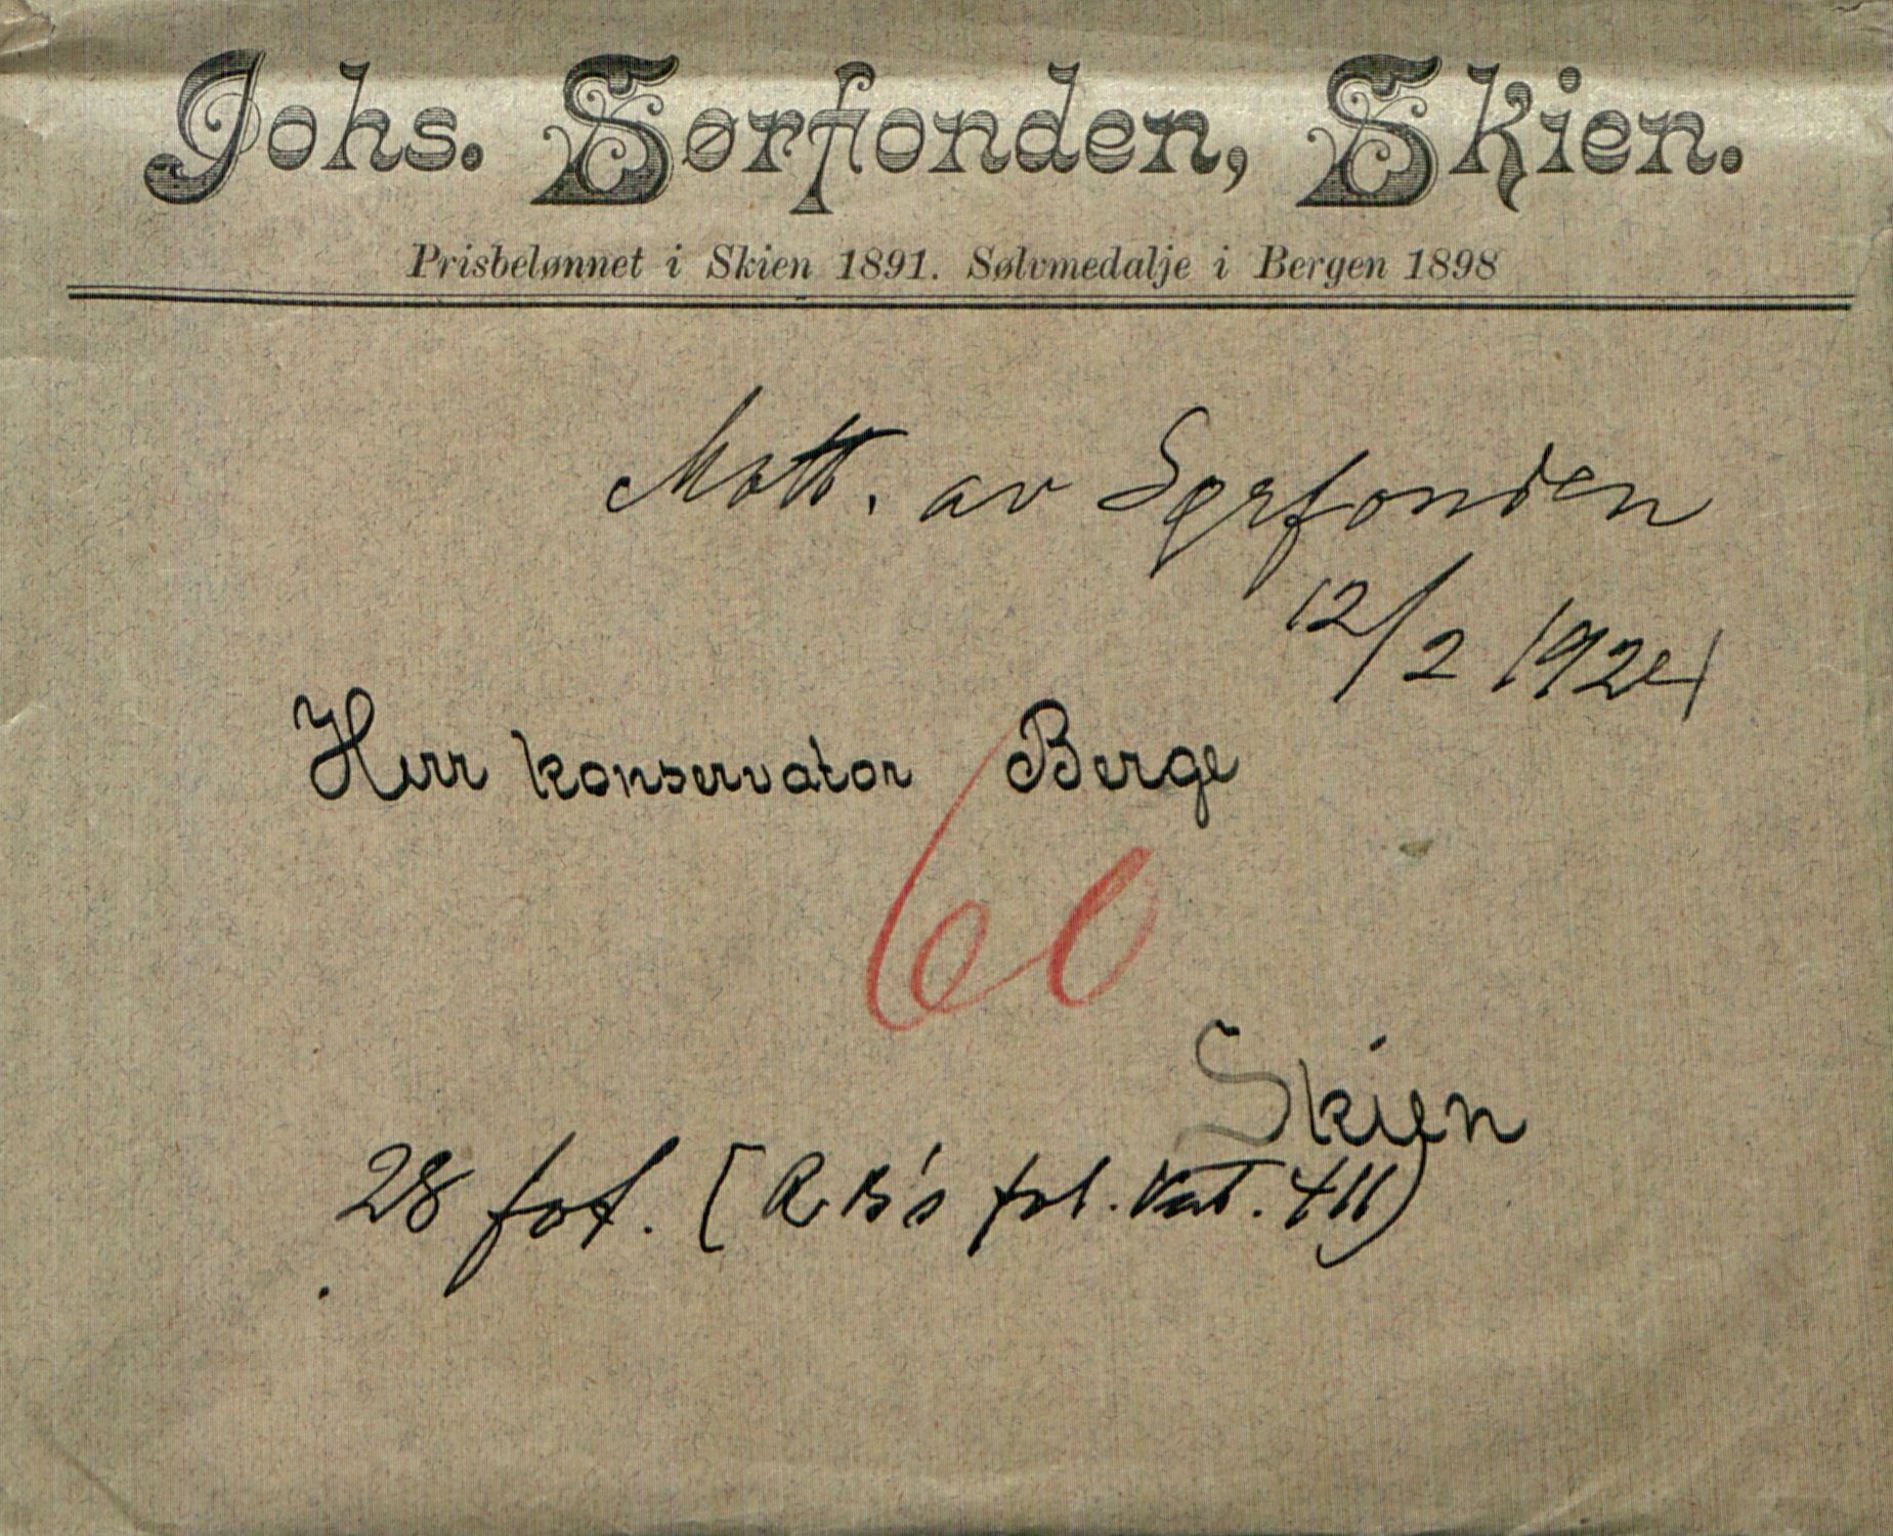 Johs. Sørfonden, Skien.
Prisbelønnet i Skien 1891. Sølvmedalje i Bergen 1898
Mott. av Sørfonden
12/2 1924
Herr konservator Berge
60
Skien
28 fot. [R B's fol. Kat. III)